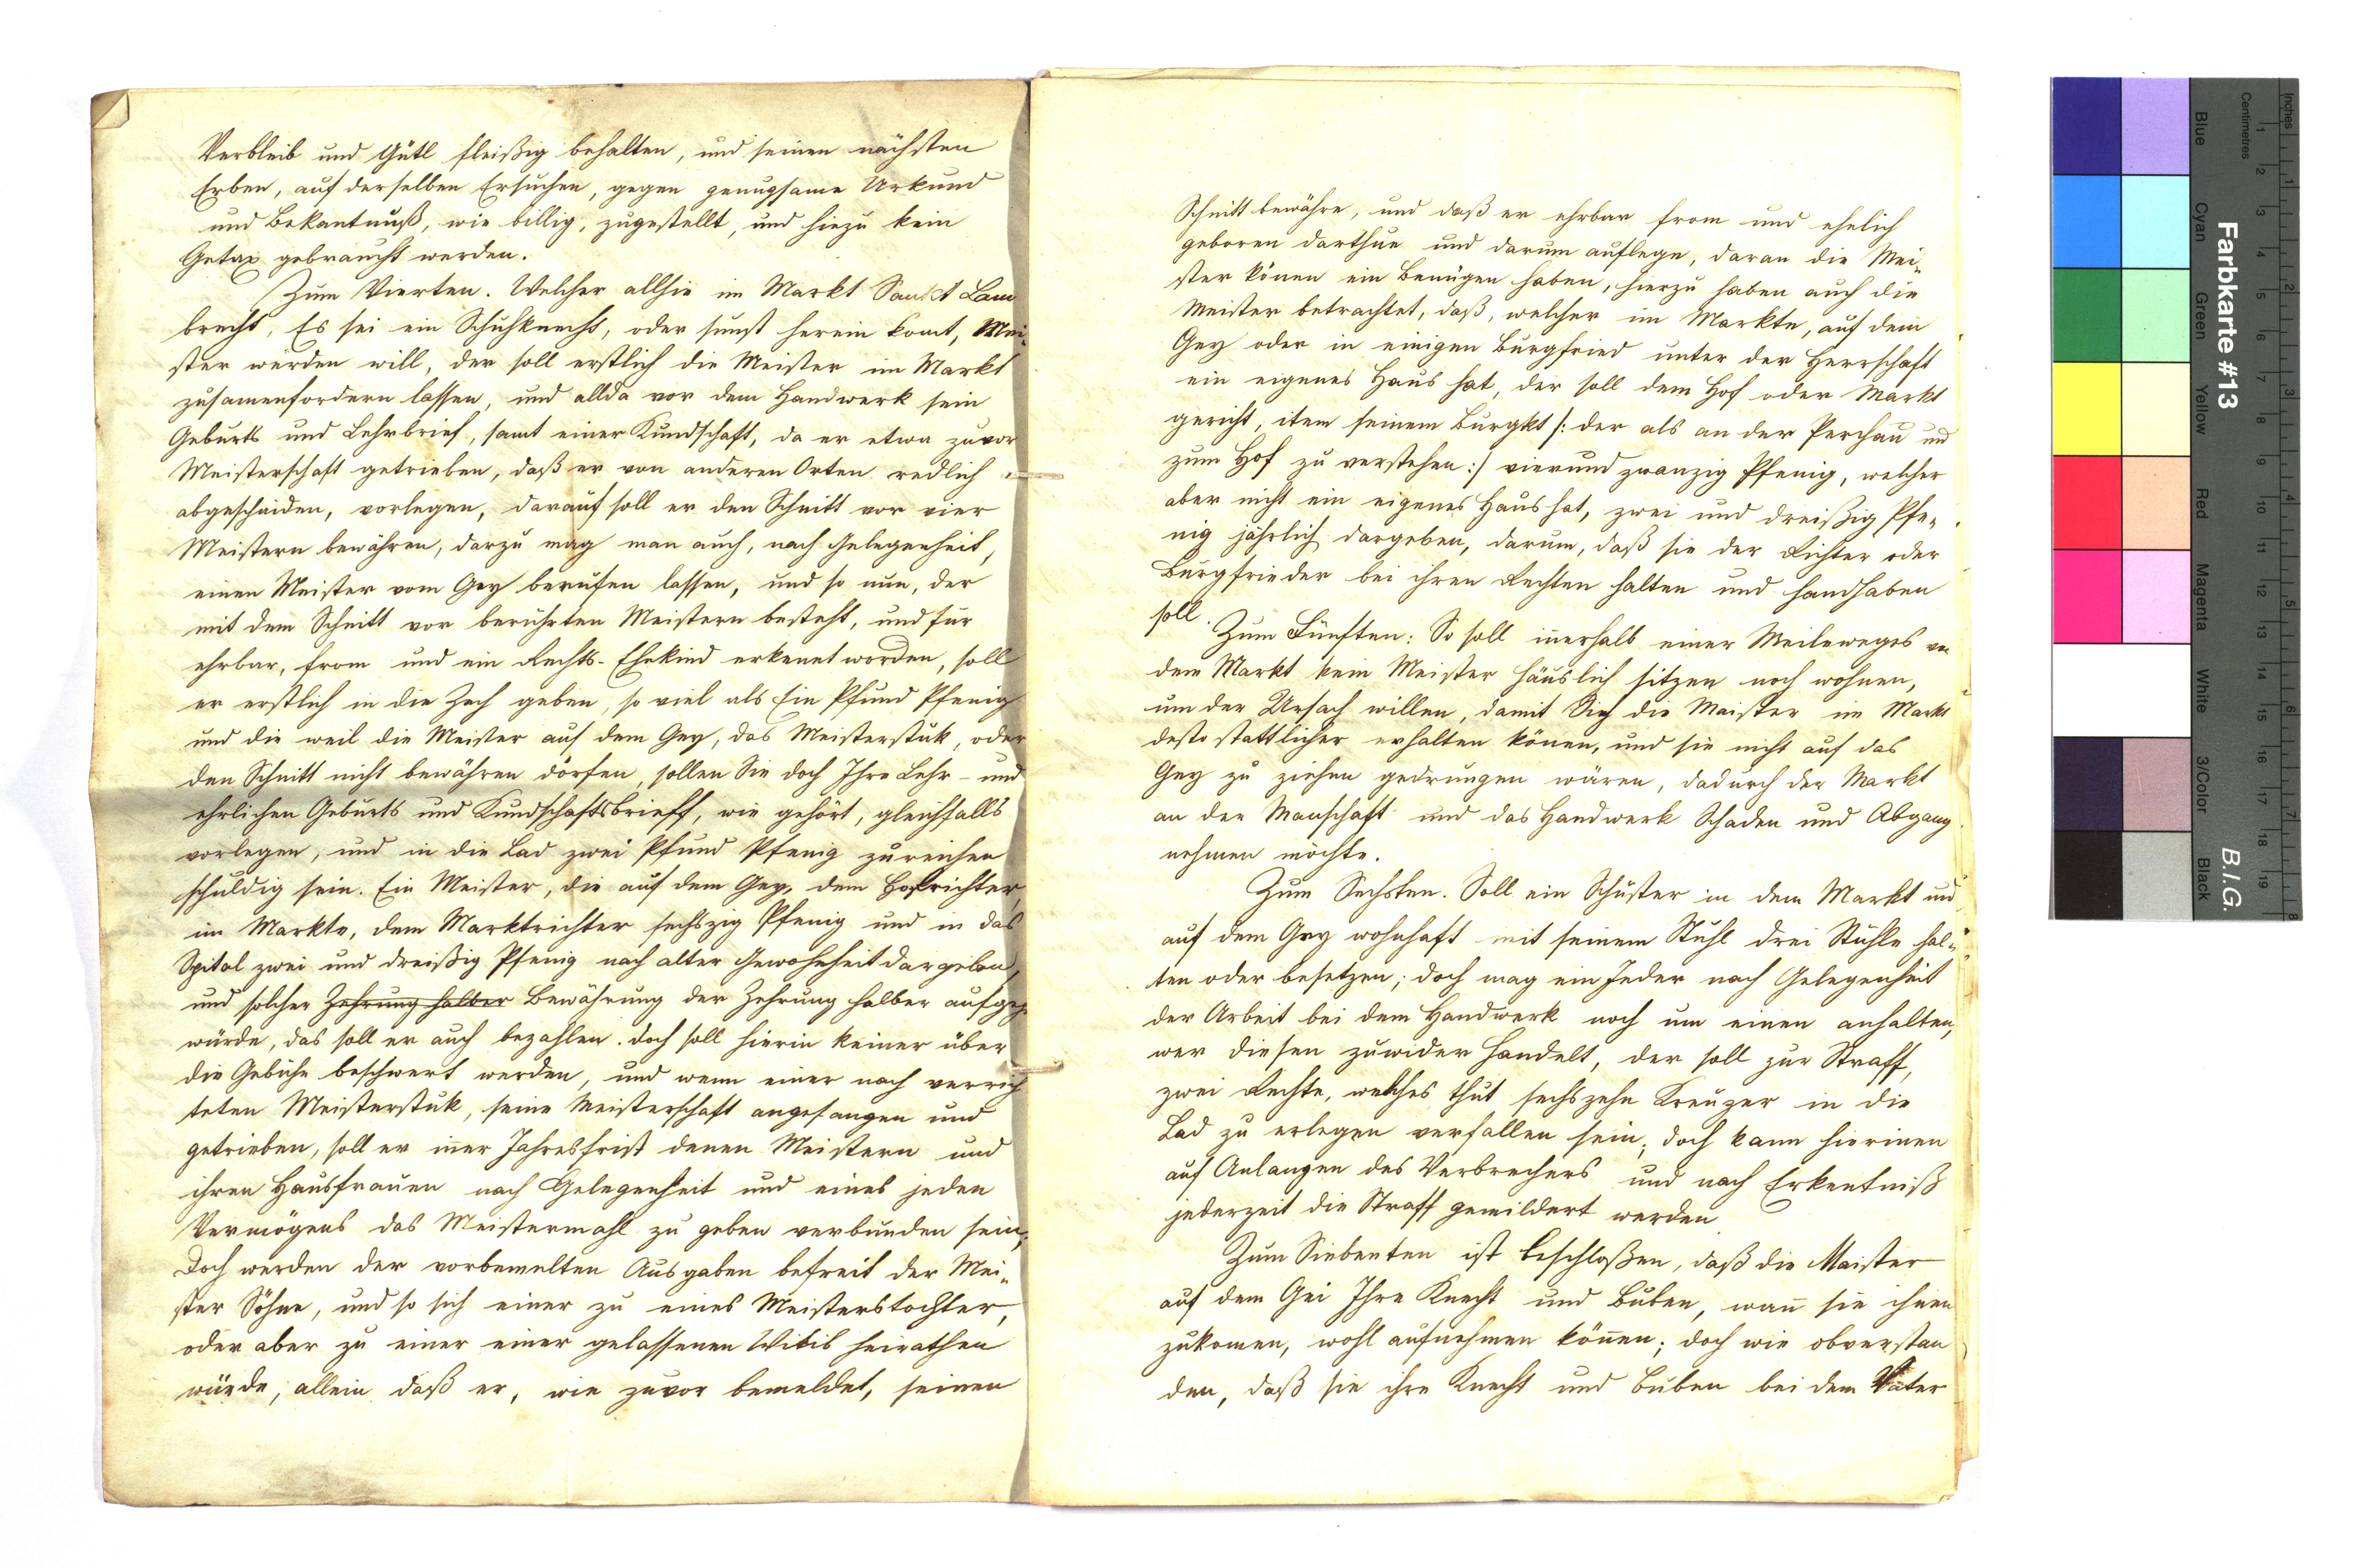 Verbleib und Gütl fleißig behalten, und seinen nächsten
Erben, auf derselben Ersuchen, gegen genugsame Urkund
und Bekantnuß, wie billig, zugestellt, und hiezu kein
Getax gebraucht werden.
Zum Vierten. Welcher allhie im Markt Sankt Lam
brecht, Es sei ein Schuhknecht, oder sunst herein komt, Mei-
ster werden will, der soll erstlich die Meister im Markt
zusamenfordern lassen, und allda vor dem Handwerk sein
Geburts und Lehrbrief, samt einer Kundschaft, da er etwa zuvor
Meisterschaft getrieben, daß er von anderen Orten redlich
abgeschaiden, vorlegen, darauf soll er den Schnitt vor vier
Meistern bewähren, darzu mag man auch, nach Gelegenheit,
einen Meister vom Gey berufen lassen, und so nun, der
mit dem Schnitt vor berührten Meistern besteht, und für
ehrbar, from und ein Rechts-Ehekind erkenet worden, soll
er erstlich in die Zech geben, so viel als Ein Pfund Pfenig
und die weil die Meister auf dem Gey, das Meisterstuk, oder
den Schnitt nicht bewähren dörfen, sollen Sie doch Ihre Lehr- und
ehrlichen Geburts und Kundschaftsbrieff, wie gehört, gleichfalls
vorlegen, und in die Lad zwei Pfund Pfenig zureichen
schuldig sein. Ein Meister, die auf dem Gey, dem Hofrichter,
im Markte, dem Marktrichter sechszig Pfenig und in das
Spital zwei und dreißig Pfenig nach alter Gewohnheit dargeben,
und solcher Zehrung halber Bewährung der Zehrung halber aufgeh
würde, das soll er auch bezahlen. doch soll hierin keiner über
die Gebühe beschwert werden, und wenn einer nach verrich
teten Meisterstuk, seine Meisterschaft angefangen und
getrieben, soll er iner Jahresfrist denen Meistern und
ihren Hausfrauen nach Gelegenheit und eines jeden
Vermögens das Meistermahl zu geben verbunden sein,
Doch werden der vorbemelten Ausgaben befreit der Mei-
ster Söhne, und so sich einer zu eines Meisterstochter,
oder aber zu einer einer gelassenen Witib heirathen
würde, allein daß er, wie zuvor bemeldet, seinen
Schnitt bewähre, und daß er ehrbar from und ehelich
geboren darthue und darum auflege, daran die Mei-
ster könen ein Benügen haben, hierzu haben auch die
Meister betrachtet, daß, welcher im Markte, auf dem
Gey oder in einigen Burgfried unter der Herrschaft
ein eigenes Haus hat, der soll dem Hof oder Markt
gericht, item seinem Burgkt /: der als an der Perchau und
zum Hof zu verstehen :/ vierund zwanzig Pfenig, welcher
aber nicht ein eigenes Haus hat, zwei und dreißig Pfe-
nig jährlich dargeben, darum, daß sie der Richter oder
Burgfrieder bei ihren Rechten halten und handhaben
soll.
Zum Fünften: So soll inerhalb einer Meileweges von
dem Markt kein Meister häuslich sitzen noch wohnen,
um der Ursach willen, damit Sich die Maister im Markt
desto stattlicher erhalten könen, und sie nicht auf das
Gey zu ziehen gedrungen wären, dadurch der Markt
an der Manschaft und das Handwerk Schaden und Abgang
nehmen möchte.
Zum Sechsten. Soll ein Schuster in dem Markt und
auf dem Gey wohnhaft mit seinem Stuhl drei Stühle hal-
ten oder besetzen; doch mag ein Jeder nach Gelegenheit
der Arbeit bei dem Handwerk noch um einen anhalten,
wer diesen zuwider handelt, der soll zur Straff,
zwei Rechte, welches thut sechszehn Kreuzer in die
Lad zu erlegen verfallen sein, doch kann hierinen
auf Anlangen des Verbrechers und nach Erkentniß
jederzeit die Straff gemildert werden
Zum Siebenten ist beschloßen, daß die Maister
auf dem Gei Ihre Knecht und Buben, wan sie ihnen
zukomen, wohl aufnehmen könen; doch wie obverstan
den, daß sie ihre Knecht und Buben bei dem Vater
Farbkarte #13
B.I.G.
Inches
Centimetres
Blue
Cyan
Green
Yellow
Red
Magenta
White
3/Color
Black
1 2 3 4 5 6 7 8 9 10 11 12 13 14 15 16 17 18 19
1 2 3 4 5 6 7 8